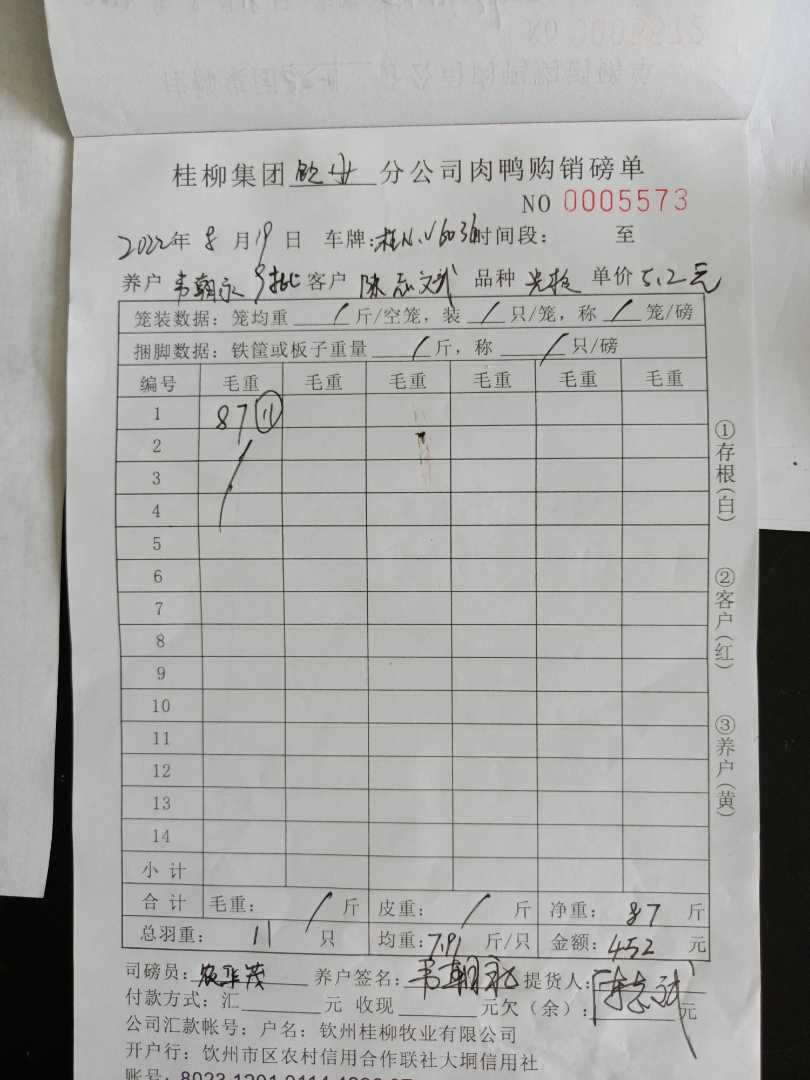 桂柳集团 钦州 分公司肉鸭购销磅单
NO 0005573
2022年 8 月 19 日 车牌: 桂N.V6036 时间段: 至
养户 韦朝永 9批 客户 陈志斌 品种 单价 5.2元
笼装数据: 笼均重 / 斤/空笼, 装 / 只/笼, 称 / 笼/磅
捆脚数据: 铁筐或板子重量 / 斤, 称 / 只/磅
编号 毛重 毛重 毛重 毛重 毛重 毛重
1 87 ⑪
2
3
4
5
6
7
8
9
10
11
12
13
14
小 计
合 计 毛重: / 斤 皮重: / 斤 净重: 87 斤
总羽重: 11 只 均重: 7.91 斤/只 金额: 452 元
司磅员: 养户签名: 韦朝永 提货人:
付款方式: 汇 元 收现 元欠(余): 元
公司汇款帐号: 户名: 钦州桂柳牧业有限公司
开户行: 饮州市区农村信用合作联社大垌信用社
账号:
①存根(白)
②客户(红)
③养户(黄)